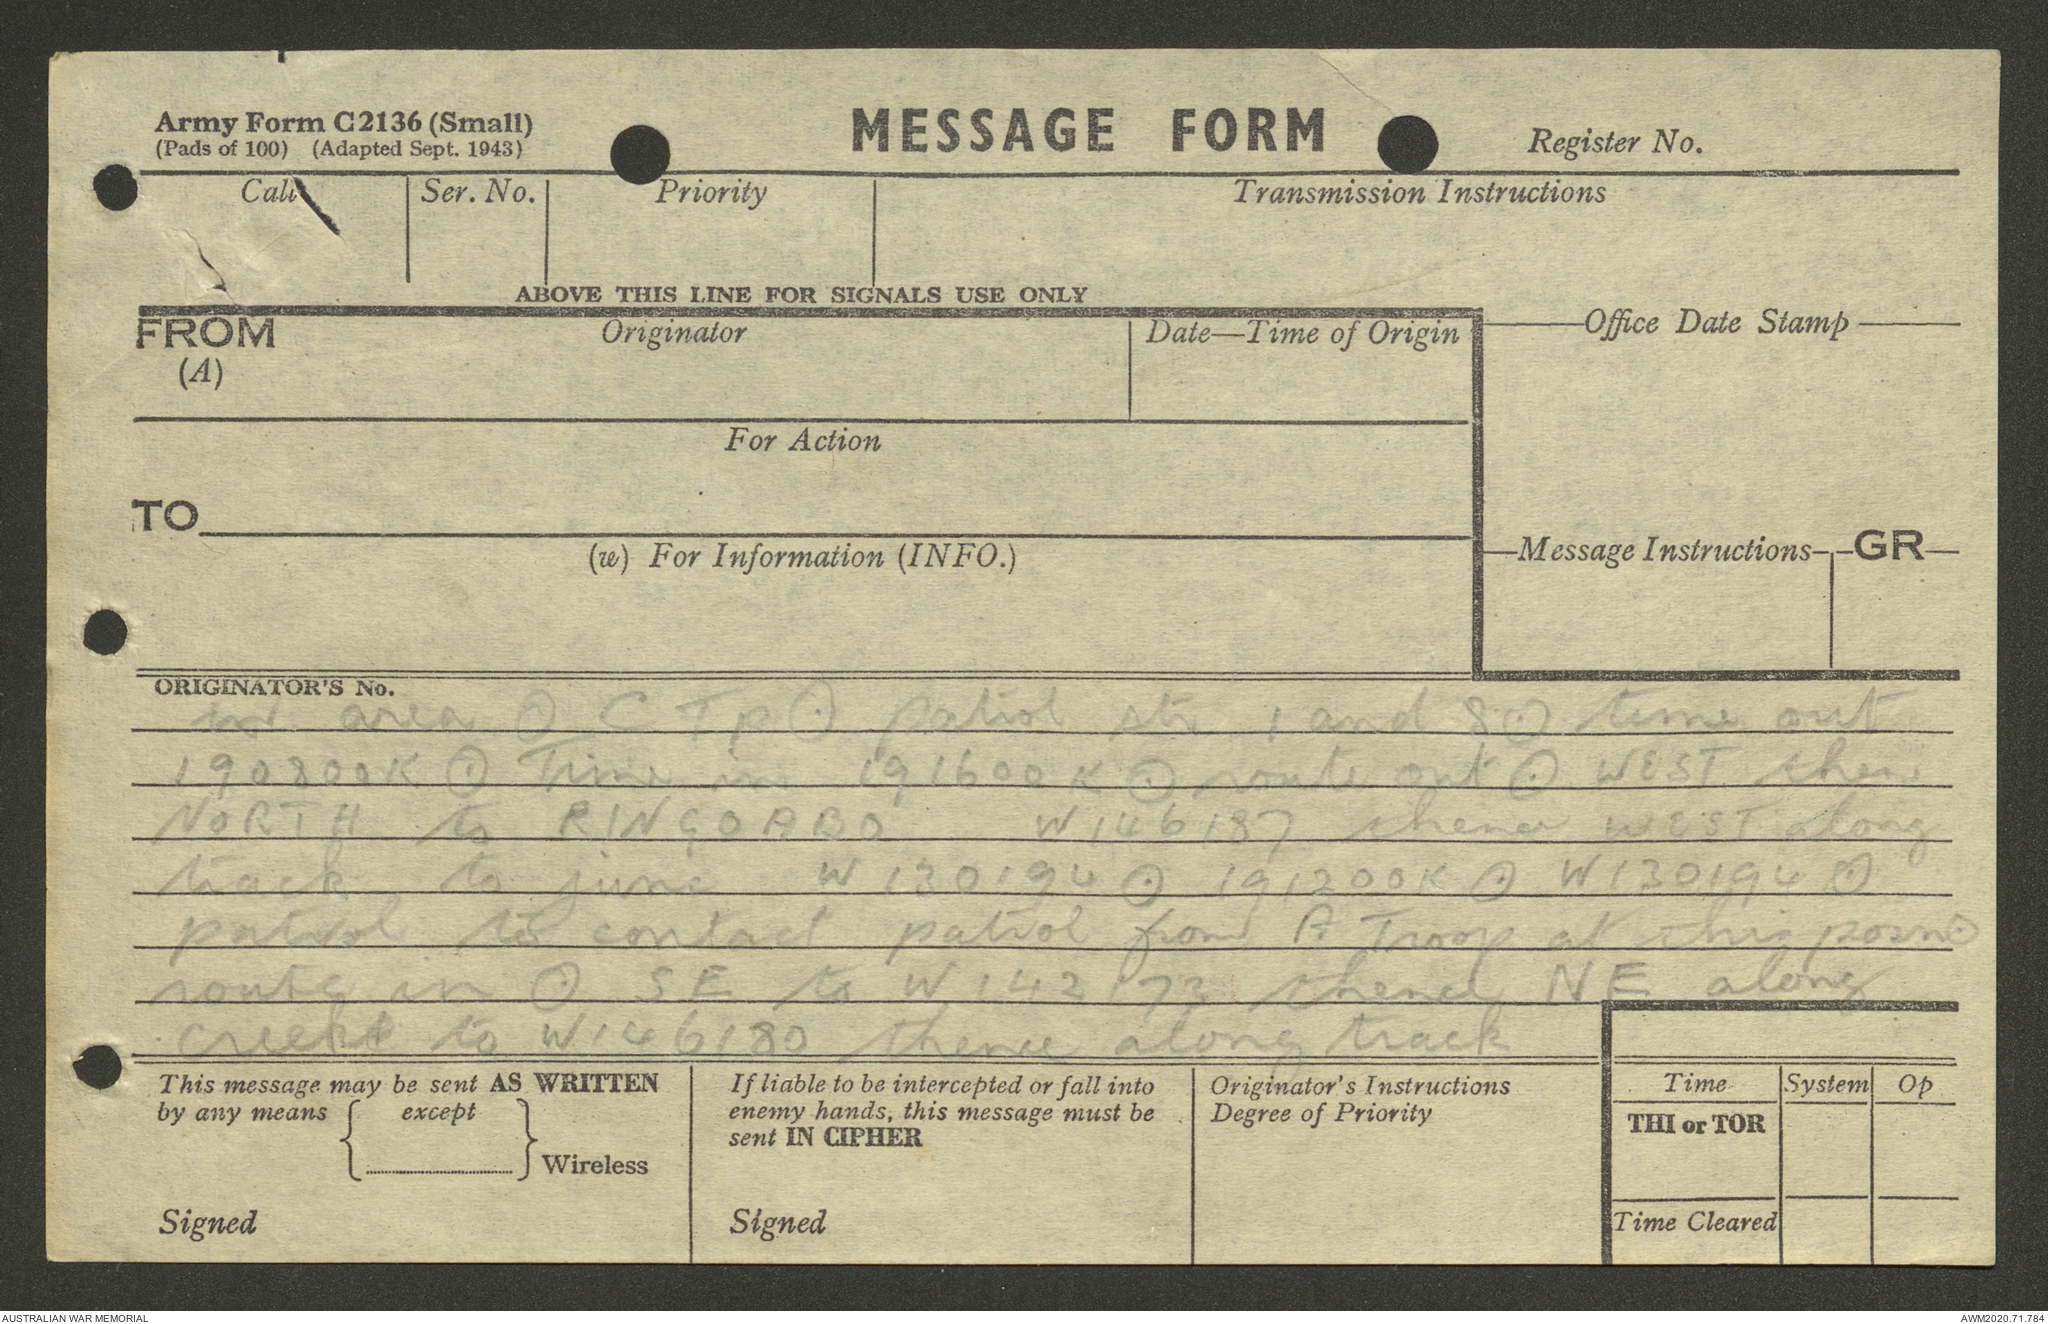 Army Form C2136 (Small)
(Pads of 100) (Adapted Sept. 1943)
MESSAGE FORM
Register No.
Call
Ser. No.
Priority
Transmission Instructions
ABOVE THIS LINE FOR SIGNALS USE ONLY
FROM
(A)
Originator
Date—Time of Origin
Office Date Stamp
For Action
TO
(w) For Information (INFO.)
Message Instructions
GR
ORIGINATOR'S No.
in area ⊙ C Tp ⊙ patrol str 1 and 8 ⊙ time out
190800K ⊙ Time in 191600K ⊙ route out ⊙ WEST then
NORTH to RINGOABO W146187 thence WEST along
track to junc W130194 ⊙ 191200K ⊙ W130194 ⊙
patrol to contact patrol from A Troop at this point ⊙
route in ⊙ SE to W142173 thence NE along
creek to W146180 thence along track
This message may be sent AS WRITTEN
by any means { except } Wireless
Signed
If liable to be intercepted or fall into
enemy hands, this message must be
sent IN CIPHER
Signed
Originator's Instructions
Degree of Priority
Time
System
Op
THI or TOR
Time Cleared
AUSTRALIAN WAR MEMORIAL
AWM2020.71.784